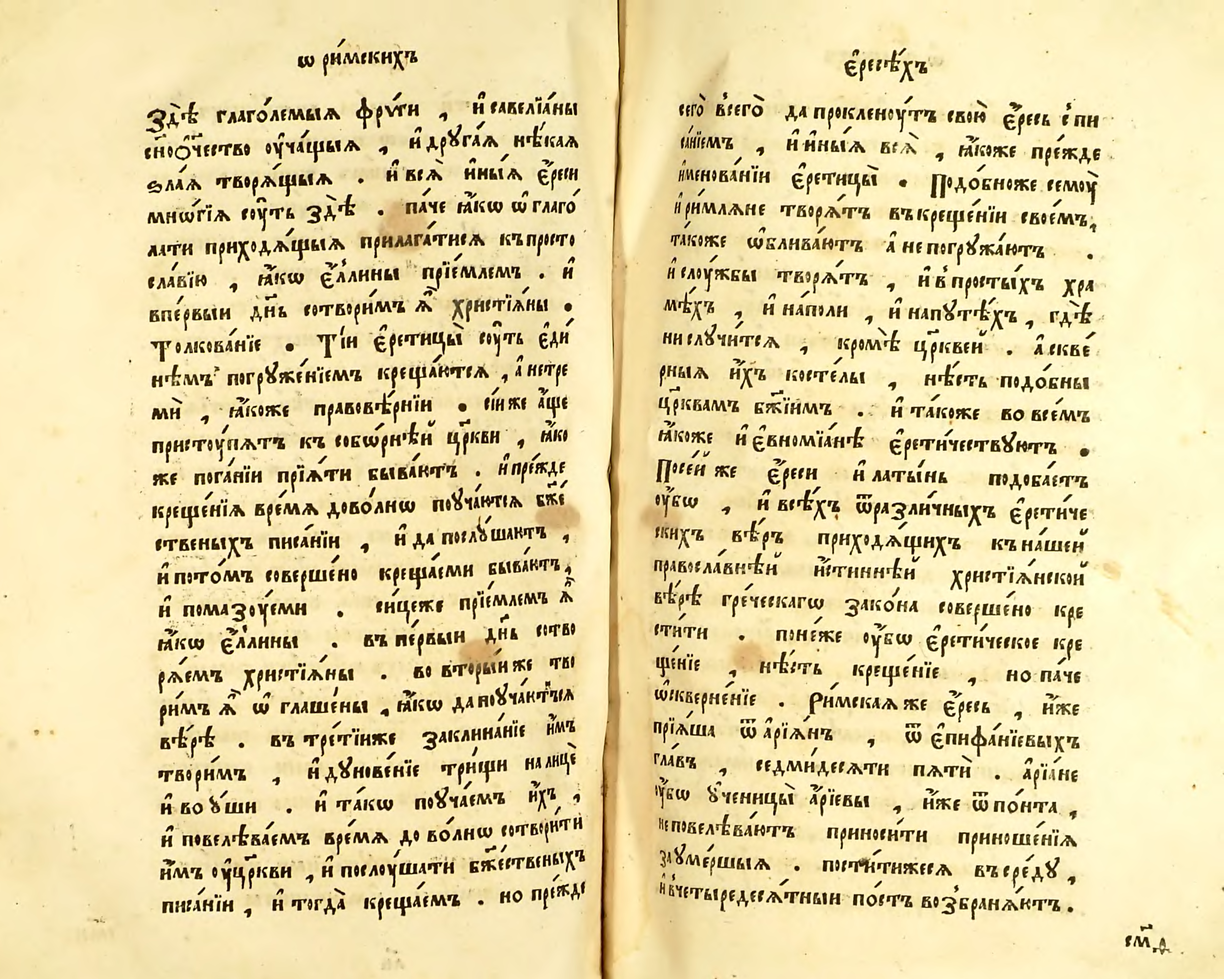 ѡ ри́мскихъ
Здѣ̀ глаго́лемыѧ фрѵ́ги , и҆ савелїа́ны
сн҃оѻч҃ество оу҆ча́щыѧ , и҆ дрꙋга́ѧ нѣ́каѧ
ѕла́ѧ творѧ́щыѧ . и҆ всѧ̀ и҆ны́ѧ є҆́реси
мно́гїѧ соу́ть здѣ̀ . па́че ꙗ҆́кѡ ѿ глаго́
лати приходѧ́щыѧ прилага́тисѧ къ просто
сла́вїю , ꙗ҆́кѡ є҆́ллины прїе́млемъ . и҆
впе́рвыи дн҃ь сотвори́мъ ѧ҆̀ христїѧ́ны .
Толкова́нїе . Ті́и є҆ретицы̀ соу́ть є҆ди́
нѣмъ погрꙋже́нїемъ креща́ютсѧ , а҆ не тре
мѝ , ꙗ҆́коже правовѣ́рнїи . сі́и же а҆́ще
пристоу́пѧтъ къ собо́рнѣй цр҃кви , ꙗ҆́ко
же пога́нїи прїѧ́ти быва́ютъ . и҆ пре́жде
креще́нїѧ вре́мѧ дово́лнѡ поуча́ютсѧ бж҃е́
ственыхъ писа́нїи , и҆ да послꙋ́шаютъ ,
и҆ пото́мъ соверше́но креща́еми быва́ютъ ,
и҆ помазоу́еми . си́цеже прїе́млемъ ѧ҆̀
ꙗ҆́кѡ є҆́ллины . въ пе́рвыи дн҃ь сотво
рѧ́емъ христїѧ́ны . во вторы́и же тво
ри́мъ ѧ҆̀ ѡ҆ глаше́ны , ꙗ҆́кѡ да ноуча́ютсѧ
вѣ́рѣ . въ тре́тїиже заклина́нїе и҆̀мъ
твори́мъ , и҆ дꙋнове́нїе три́щи на лицѐ
и҆ во ꙋ҆́ши . и҆ та́кѡ поуча́емъ и҆́хъ ,
и҆ повелѣва́емъ вре́мѧ до во́лнѡ сотвори́ти
и҆́мъ оу҆ цр҃кви , и҆ послоу́шати бж҃е́ственыхъ
писа́нїи , и҆ тогда̀ креща́емъ . но пре́жде
є҆ресѣ́хъ
сего̀ всего̀ да прокленоу́тъ свою̀ є҆́ресь с пи
са́нїемъ , и҆ и҆ны́ѧ всѧ̀ , ꙗ҆́коже пре́жде
и҆менова́нїи є҆ретицы̀ . Подо́бноже семоу̀
и҆ ри́млѧне творѧ́тъ въ креще́нїи свое́мъ ,
та́коже ѡ҆блива́ютъ а҆ не погрꙋжа́ютъ .
и҆ слоу́жбы творѧ́тъ , и҆ в просты́хъ хра
мѣ́хъ , и҆ на́поли , и҆ на пꙋтѣ́хъ , гдѣ̀
ни слꙋчи́тсѧ , кромѣ̀ цр҃квей . а҆ скве́
рныѧ и҆́хъ косте́лы , нѣ́сть подо́бны
цр҃квамъ бж҃їимъ . и҆ та́коже во все́мъ
ꙗ҆́коже и҆ є҆вномїа́нѣ є҆рети́чествꙋютъ .
По се́й же є҆́реси и҆ латы́нь подоба́етъ
оу҆́бѡ , и҆ всѣ́хъ ѿ разли́чныхъ є҆рети́че
скихъ вѣ́ръ приходѧ́щихъ къ на́шей
правосла́внѣй и҆́стиннѣй христїѧ́нской
вѣ́рѣ гре́ческагѡ зако́на соверше́но кре
сти́ти . поне́же оу҆́бѡ є҆рети́ческое кре
ще́нїе , нѣ́сть креще́нїе , но па́че
ѡ҆скверне́нїе . Ри́мскаѧ же є҆́ресь , и҆́же
прїѧ́ша ѿ а҆рїѧ́нъ , ѿ є҆пифа́нїевыхъ
гла́въ , седмидесѧ́ти пѧ́ти . а҆рїа́не
оу҆́бѡ ꙋ҆ченицы̀ а҆́рїевы , и҆́же ѿ по́нта ,
не повелѣва́ютъ приноси́ти приноше́нїѧ
за ꙋ҆ме́ршыѧ . пости́тижесѧ въ сре́дꙋ ,
и҆ в четыредесѧ́тныи по́стъ возбранѧ́ютъ .